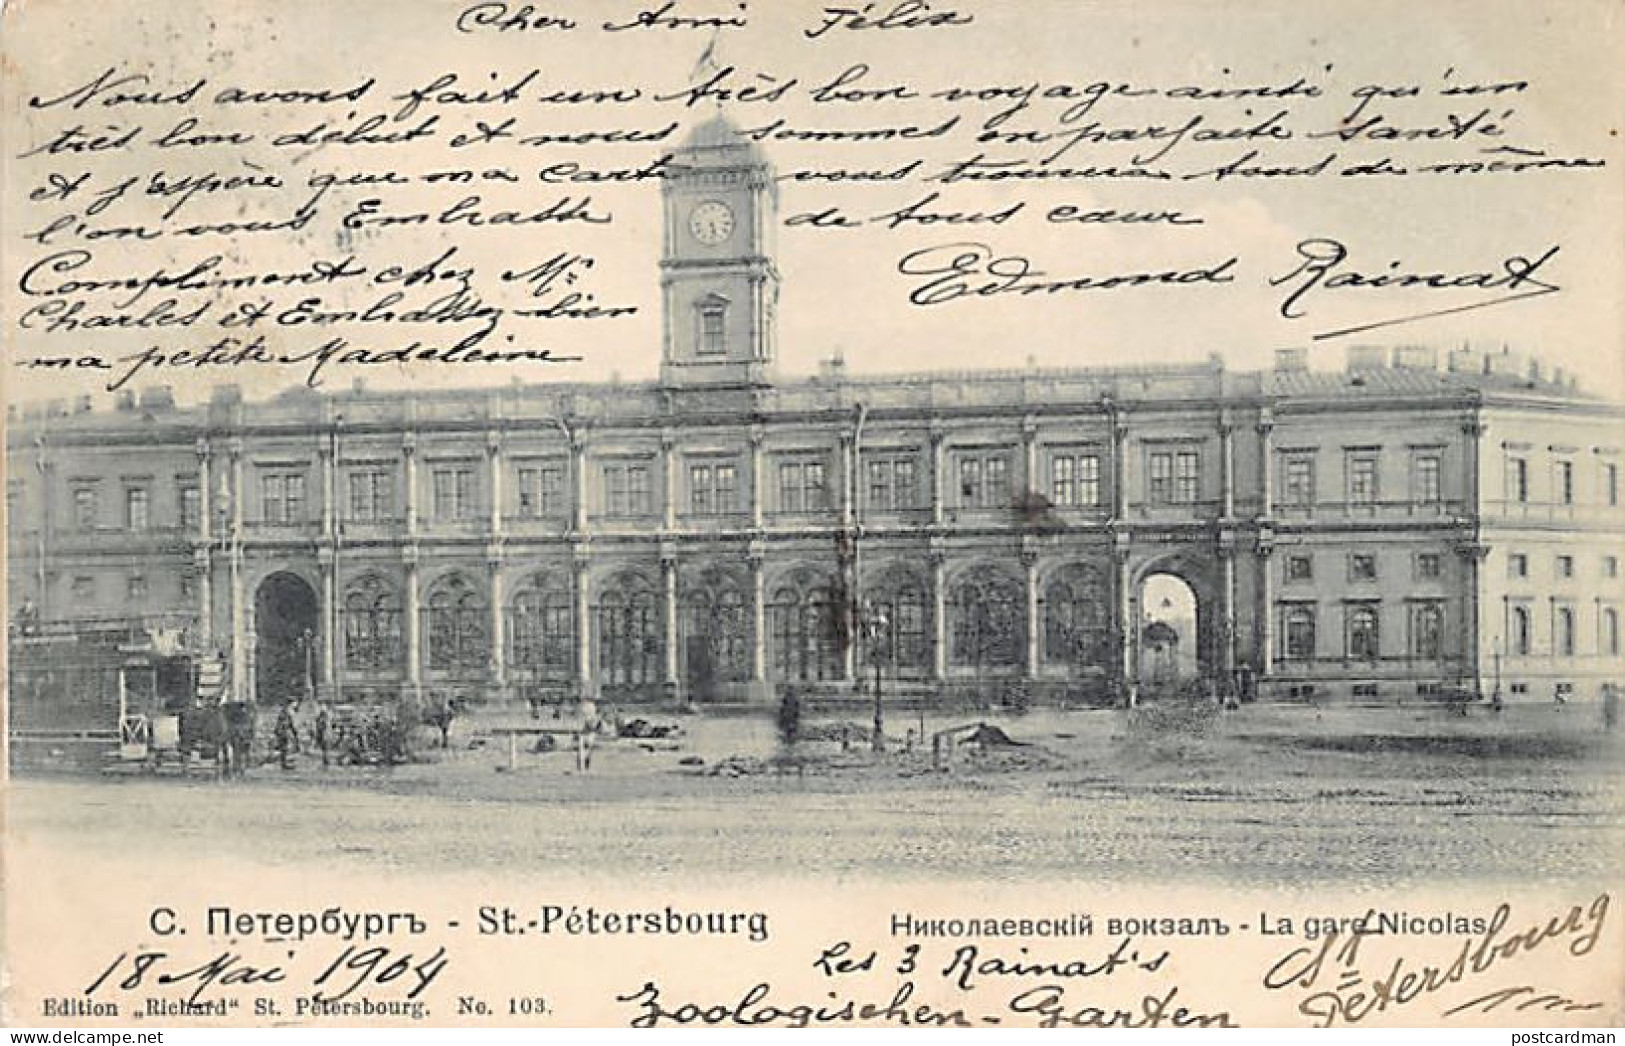 Cher Ami Félix
Nous avons fait un très bon voyage ainsi qu'un
très bon début et nous sommes en parfaite santé
et j'éspère que ma carte vous trouvera tous de même
l'on vous Embrasse de tous cœur
Compliment chez Mr
Charles et Embrassez bien
ma petite Madeleine
Edmond Rainat
С. Петербургъ - St.-Pétersbourg
Николаевскій вокзалъ - La gare Nicolas
18 Mai 1904
Les 3 Rainat's
Zoologischen-Garten
St Pétersbourg
Edition „Richard“ St. Pétersbourg. No. 103.
http://www.delcampe.net
postcardman